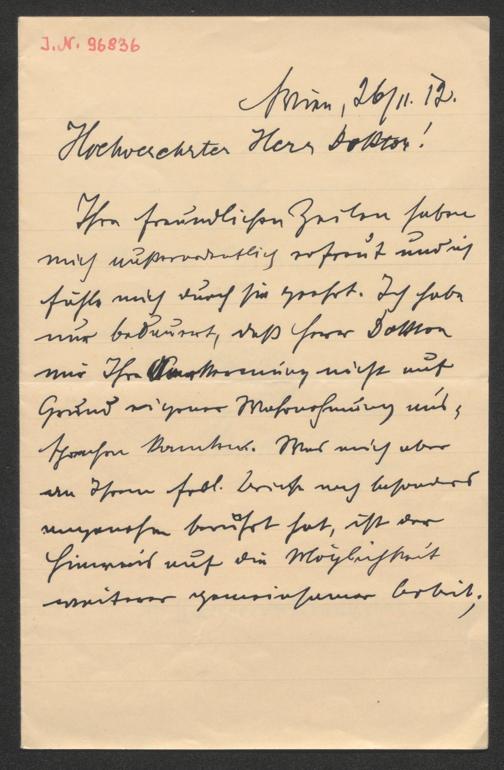 J.N. 96836
Wien, 26/11. 12.
Hochverehrter Herr Doktor!
Ihre freundlichen Zeilen haben
mich außerordentlich erfreut und ich
fühle mich durch sie geehrt. Ich habe
nur bedauert, daß Herr Doktor
mir Ihre Anerkennung nicht auf
Grund eigener Wahrnehmung aus-
sprechen konnten. Was mich aber
an Ihrem frdl. Briefe noch besonders
angenehm berührt hat, ist der
Hinweis auf die Möglichkeit
weiterer gemeinsamer Arbeit,